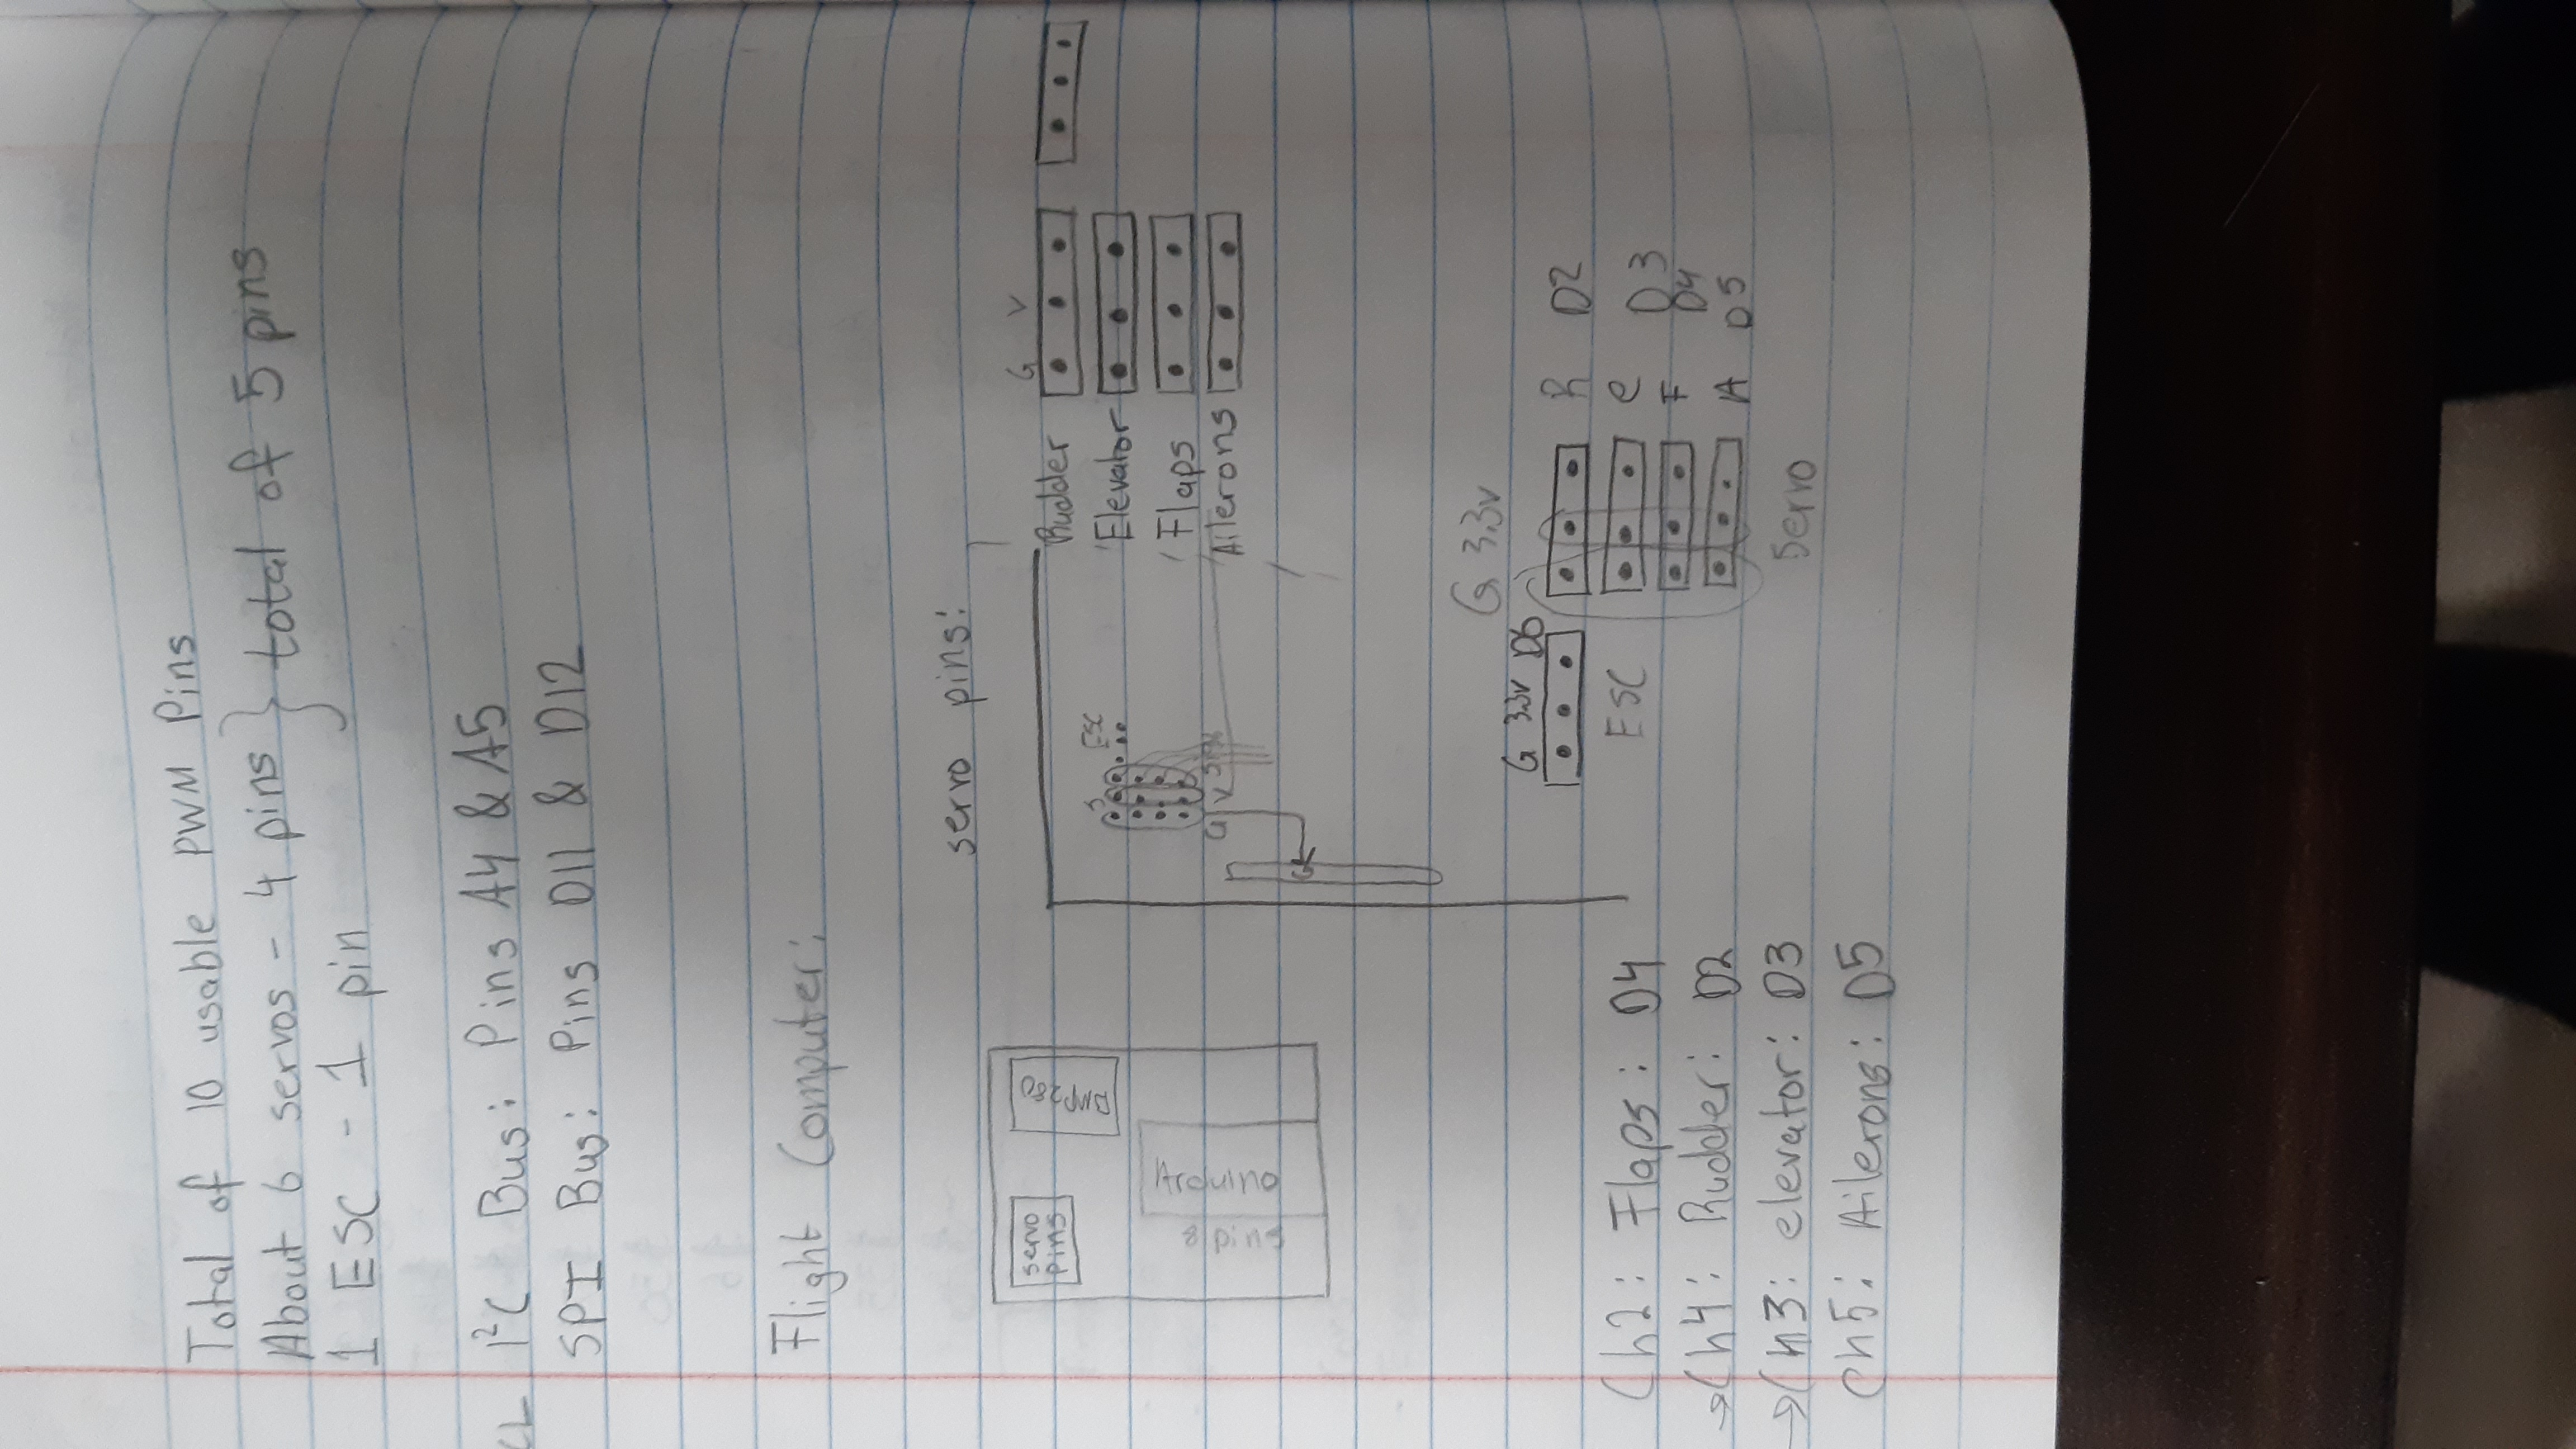 Total of 10 usable PWM Pins
About 6 servos - 4 pins } total of 5 pins
1 ESC - 1 pin
CL
I²C Bus: Pins A4 & A5
SPI Bus: Pins D11 & D12
Flight Computer:
servo pins:
servo
pins
BMP280
Arduino
8 pins
S ESC
G V S
G
G V
Rudder
Elevator
Flaps
Ailerons
G 3.3v
G 3.3v D6
ESC
R D2
e D3
F D4
A D5
Servo
Ch2: Flaps: D4
→Ch4: Rudder: D2
→Ch3: elevator: D3
Ch5: Ailerons: D5